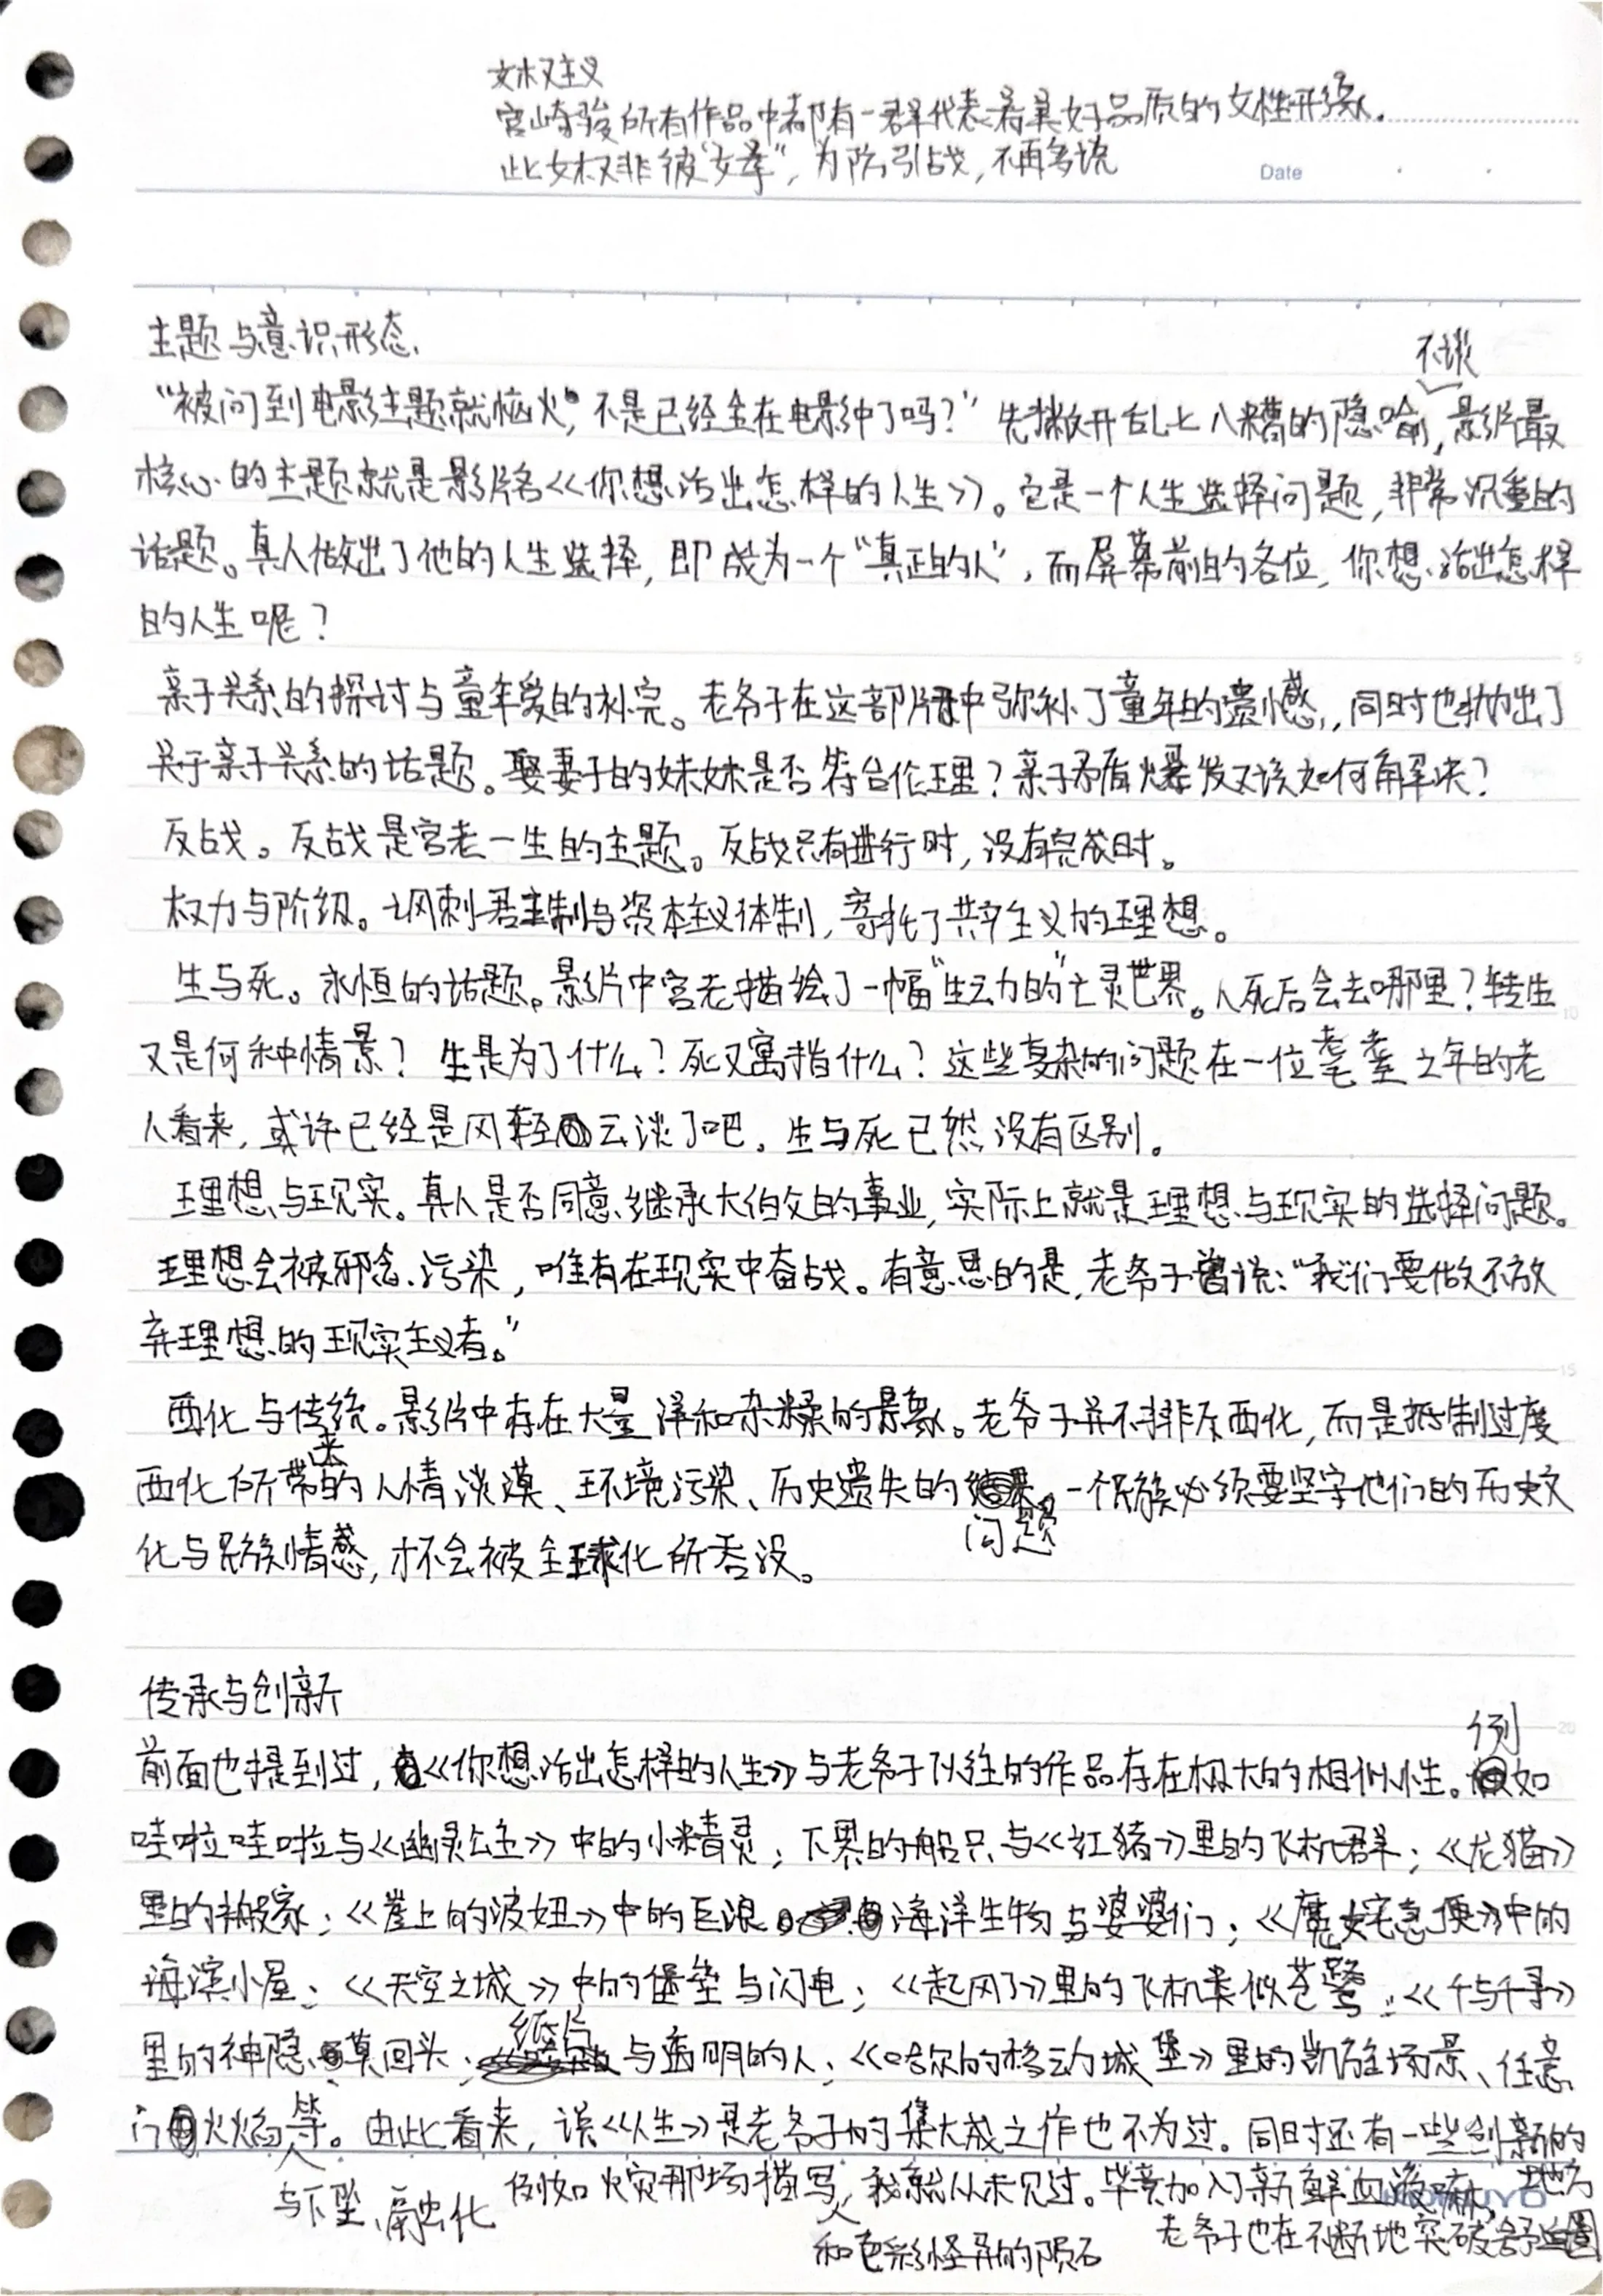 女权主义
宫崎骏所有作品中都有一群代表着美好品质的女性形象.
此女权非彼“女拳”, 为防引战, 不再多说
Date
主题与意识形态.
不谈
“被问到电影主题就恼火, 不是已经全在电影中了吗?” 先撇开乱七八糟的隐喻, 影片最
核心的主题就是影片名《你想活出怎样的人生》。它是一个人生选择问题, 非常沉重的
话题。真人做出了他的人生选择, 即成为一个“真正的人”, 而屏幕前的各位, 你想活出怎样
的人生呢?
亲子关系的探讨与童年爱的补完。老爷子在这部片中弥补了童年的遗憾, 同时也抛出了
关于亲子关系的话题。娶妻子的妹妹是否符合伦理? 亲子矛盾爆发又该如何解决?
反战。反战是宫老一生的主题。反战只有进行时, 没有完成时。
权力与阶级。讽刺君主制与资本主义体制, 寄托了共产主义的理想。
生与死。永恒的话题。影片中宫老描绘了一幅“生动的”亡灵世界。人死后会去哪里? 转生
又是何种情景? 生是为了什么? 死又寓指什么? 这些复杂的问题在一位耄耋之年的老
人看来, 或许已经是风轻云淡了吧, 生与死已然没有区别。
理想与现实。真人是否同意继承大伯父的事业, 实际上就是理想与现实的选择问题。
理想会被邪念污染, 唯有在现实中奋战。有意思的是, 老爷子曾说: “我们要做不放
弃理想的现实主义者。”
西化与传统。影片中存在大量洋和杂糅的景象。老爷子并不排斥西化, 而是抵制过度
西化所带来的人情淡漠、环境污染、历史遗失的问题。一个民族必须要坚守他们的历史文
化与民族情感, 才不会被全球化所吞没。
传承与创新
前面也提到过, 《你想活出怎样的人生》与老爷子以往的作品存在极大的相似性。例如
哇啦哇啦与《幽灵公主》中的小精灵; 下界的船只与《红猪》里的飞机群; 《龙猫》
里的搬家; 《崖上的波妞》中的巨浪、海洋生物与婆婆们; 《魔女宅急便》中的
海滨小屋; 《天空之城》中的堡垒与闪电; 《起风了》里的飞机类似苍鹭; 《千与千寻》
里的神隐、莫回头; 纸片与透明的人; 《哈尔的移动城堡》里的凯旋场景、任意
门、火焰与下坠、融化等。由此看来, 说《人生》是老爷子的集大成之作也不为过。同时还有一些创新的地方
例如火灾那场描写和色彩怪异的陨石, 我就从未见过。毕竟加入了新鲜血液嘛,
老爷子也在不断地突破舒适圈